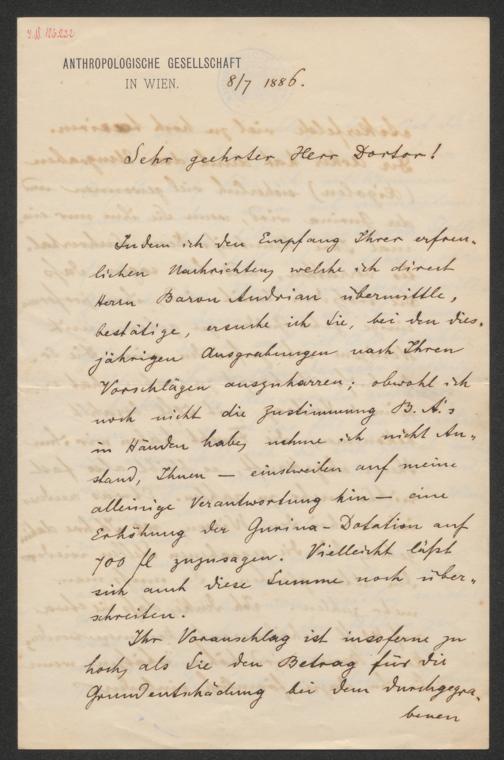 ANTHROPOLOGISCHE GESELLSCHAFT
IN WIEN.
8/7 1886.
Sehr geehrter Herr Doctor!
Indem ich den Empfang Ihrer erfreu-
lichen Nachrichten, welche ich direct
Herrn Baron Andrian übermittle,
bestätige, ersuche ich Sie, bei den dies-
jährigen Ausgrabungen nach Ihren
Vorschlägen auszuharren; obwohl ich
noch nicht die Zustimmung B. A.'s
in Händen habe, nehme ich nicht An-
stand, Ihnen — einstweilen auf meine
alleinige Verantwortung hin — eine
Erhöhung der Gurina-Dotation auf
700 fl zuzusagen. Vielleicht läßt
sich auch diese Summe noch über-
schreiten.
Ihr Voranschlag ist insoferne zu
hoch, als Sie den Betrag für die
Grundentschädung bei dem durchgegra-
benen